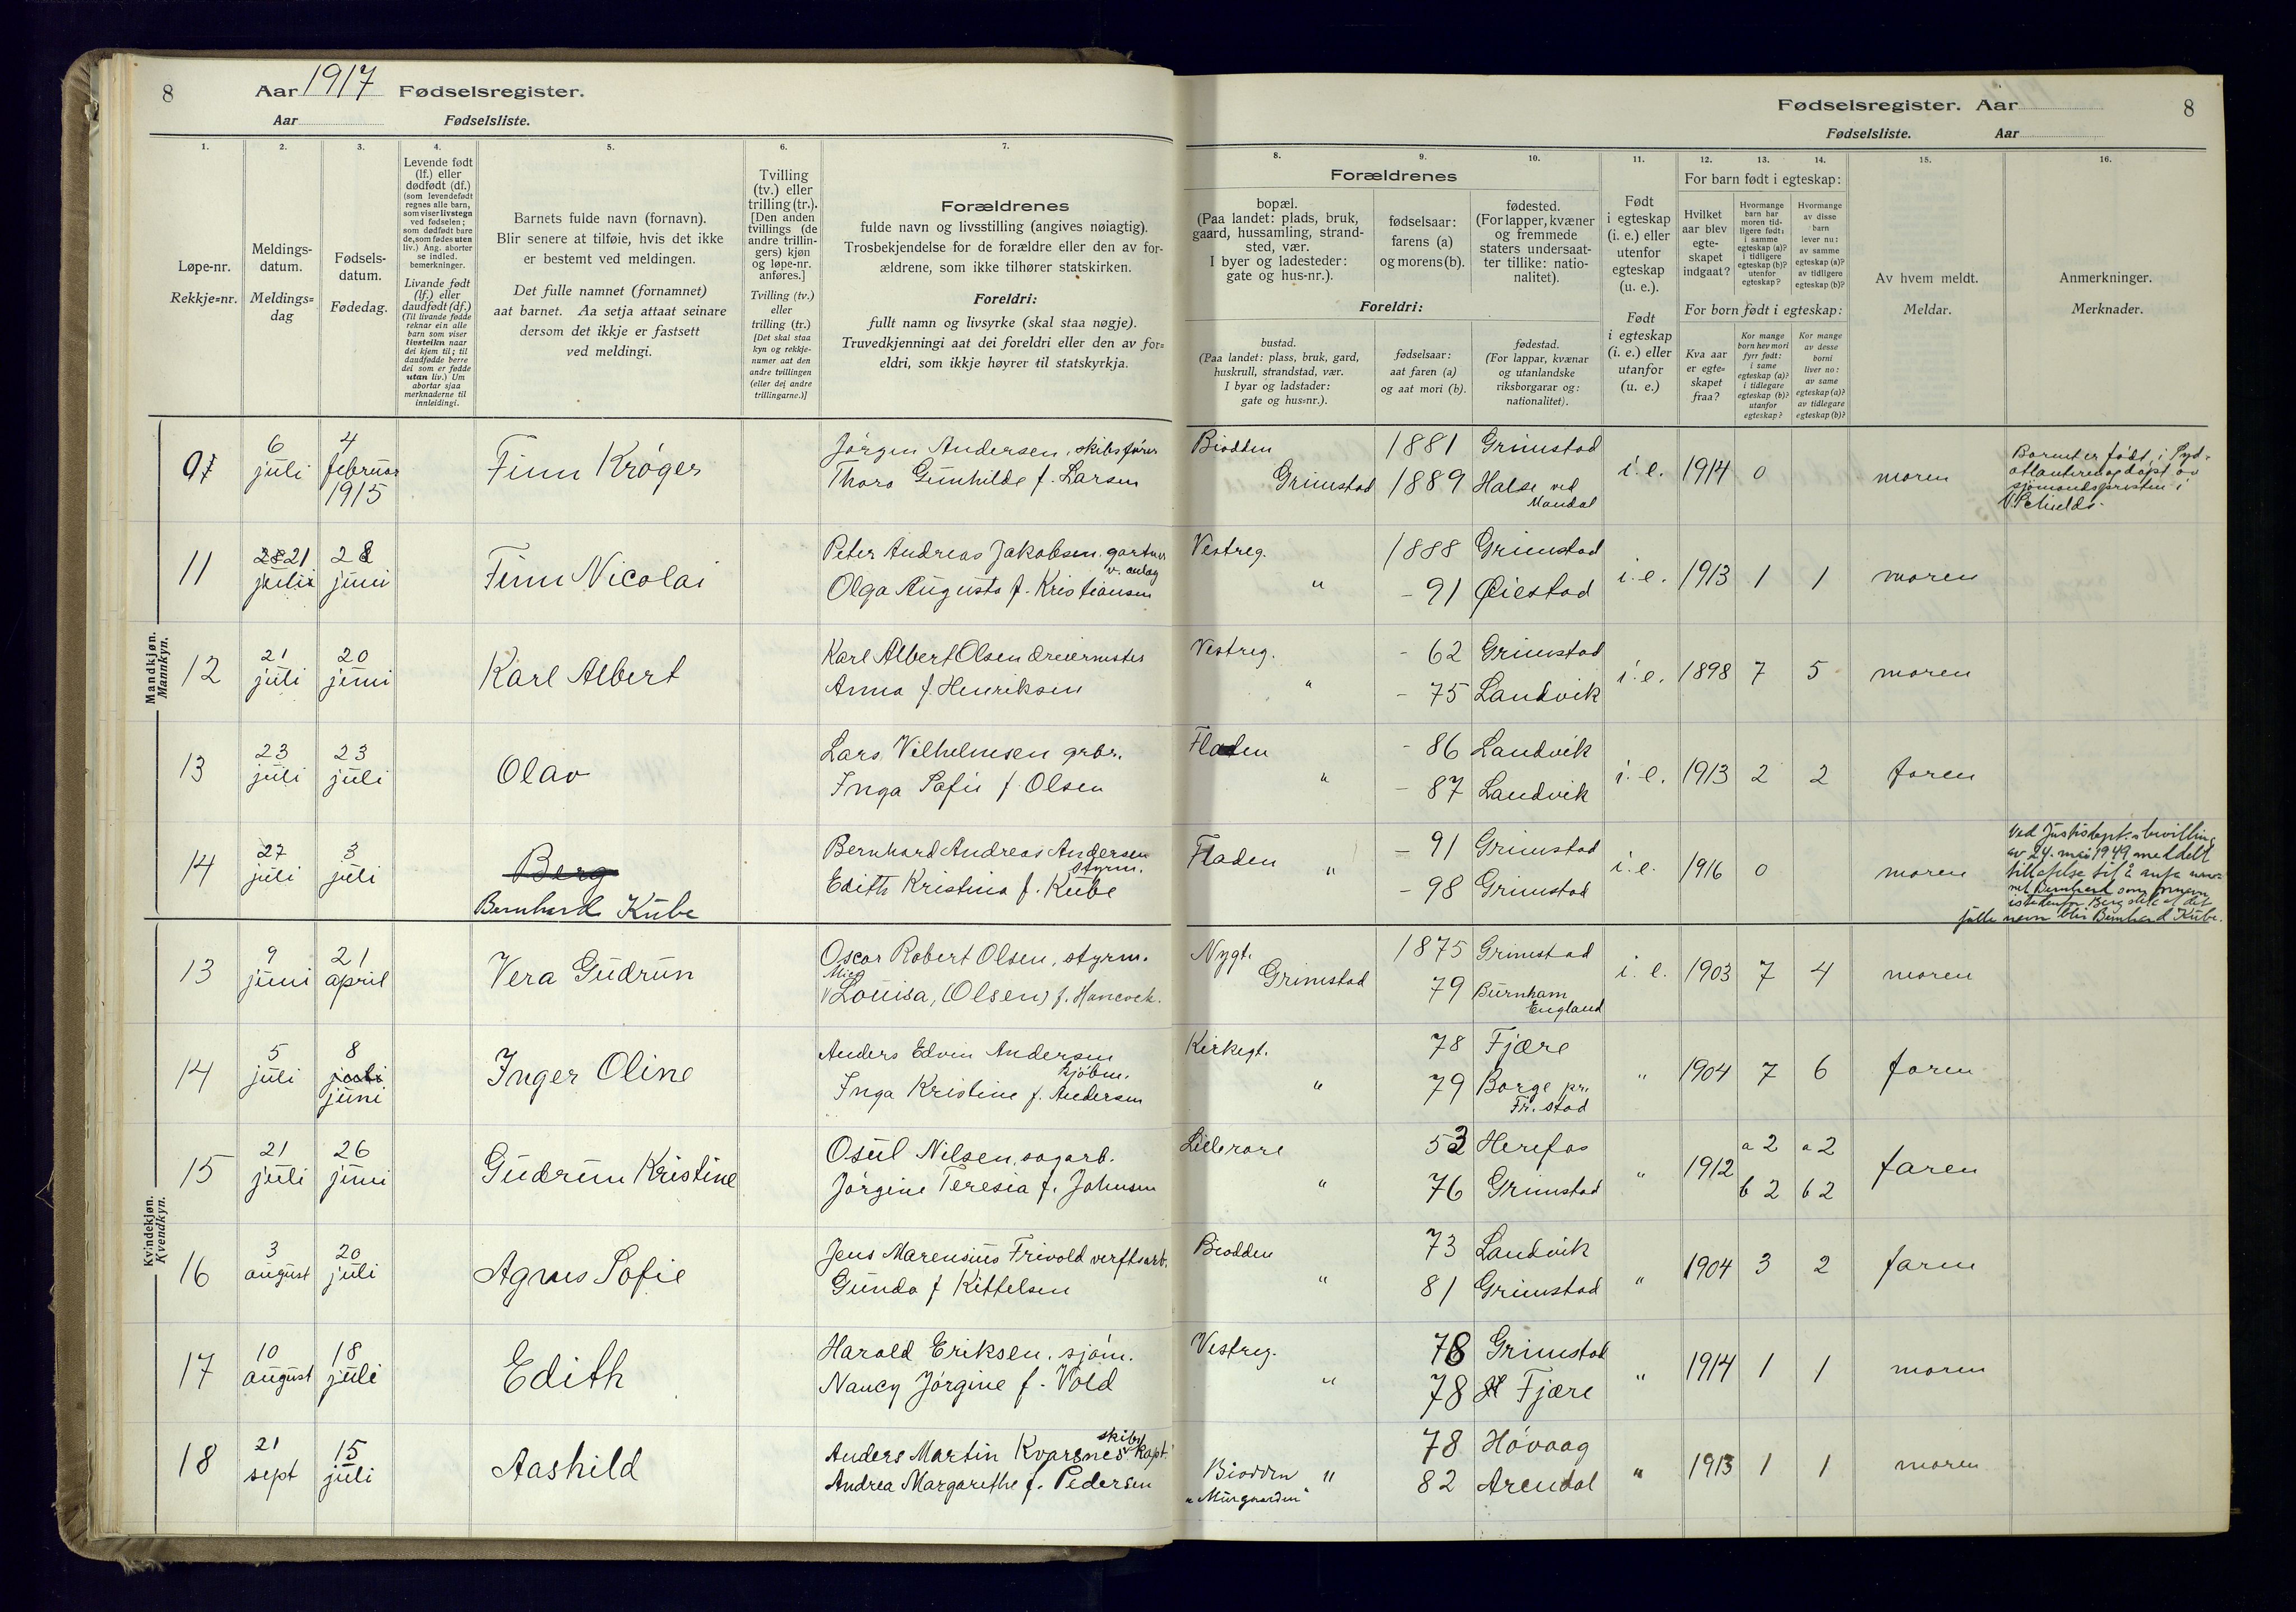 8 Aar 1917 Fødselsregister.
Aar Fødselsliste.
Fødselsregister. Aar 8
Fødselsliste. Aar
1. 2. 3. 4. 5. 6. 7.
Løpe-nr.
Rekkje=nr.
Meldings-
datum.
Meldings=
dag
Fødsels-
datum.
Fødedag.
Levende født
(lf.) eller
dødfødt (df.)
(som levendefødt
regnes alle barn,
som viser livstegn
ved fødselen;
som dødfødt bare
de, som fødes uten
liv.) Ang. aborter
se indled.
bemerkninger.
Livande født
(lf.) eller
daudfødt (df.)
(Til livande fødde
reknar ein alle
barn som viser
livsteikn naar
dei kjem til; til
daudfødde berre
dei som er fødde
utan liv.) Um
abortar sjaa
merknaderne til
innleidingi.
Barnets fulde navn (fornavn).
Blir senere at tilføie, hvis det ikke
er bestemt ved meldingen.
Det fulle namnet (fornamnet)
aat barnet. Aa setja attaat seinare
dersom det ikkje er fastsett
ved meldingi.
Tvilling
(tv.) eller
trilling (tr.).
[Den anden
tvillings (de
andre trillin-
gers) kjøn
og løpe-nr.
anføres.]
Tvilling (tv.)
eller
trilling (tr.)
[Det skal staa
kyn og rekkje-
numer aat den
andre tvillingen
(eller dei andre
trillingarne.)]
Forældrenes
fulde navn og livsstilling (angives nøiagtig).
Trosbekjendelse for de forældre eller den av for-
ældrene, som ikke tilhører statskirken.
Foreldri:
fullt namn og livsyrke (skal staa nøgje).
Truvedkjenningi aat dei foreldri eller den av for=
eldri, som ikkje høyrer til statskyrkja.
8. 9. 10. 11. 12. 13. 14. 15. 16.
Forældrenes
bopæl.
(Paa landet: plads, bruk,
gaard, hussamling, strand-
sted, vær.
I byer og ladesteder:
gate og hus-nr.).
fødselsaar:
farens (a)
og morens (b).
fødested.
(For lapper, kvæner
og fremmede
staters undersaat-
ter tillike: natio-
nalitet).
Foreldri:
bustad.
(Paa landet: plass, bruk, gard,
huskrull, strandstad, vær.
I byar og ladstader:
gate og hus=nr.).
fødselsaar:
aat faren (a)
og aat mori (b).
fødestad.
(For lappar, kvænar
og utanlandske
riksborgarar og:
nationalitet).
Født
i egteskap
(i. e.) eller
utenfor
egteskap
(u. e.).
Født
i egteskap
(i. e.) eller
utanfor
(u. e.)
For barn født i egteskap:
Hvilket
aar blev
egte-
skapet
indgaat?
Hvormange
barn har
moren tid-
ligere født:
i samme
egteskap (a)?
i tidligere
egteskap (b)?
utenfor
egteskap?
Hvormange
av disse
barn
lever nu:
av samme
egteskap (a)?
av tidligere
egteskap (b)?
For born født i egteskap:
Kva aar
er egte=
skapet
fraa?
Kor mange
born hev mori
fyrr født:
i same
egteskap (a)?
i tidlegare
egteskap (b)?
utanfor
egteskap?
Kor mange
av desse
borni
liver no:
av same
egteskap (a)?
av tidlegare
egteskap (b)?
Av hvem meldt.
Meldar.
Anmerkninger.
Merknader.
Mandkjøn.
Mannkyn.
6 4 Jörgen Andersen, skibsfører Biodden 1881 Grimstad
juli februar Finn Kröger i. e. 1914 0 moren
1915 Thora Gunhilde f. Larsen Grimstad 1889 Halse ved
Mandal
Barnet er født i Syd-
atlanteren og døpt av
sjømandspresten i
Schields.
11 21 juli juni Finn Nicolai
Peter Andreas Jakobsen, gartner
v. anlæg
Olga Augusta f. Kristiansen
Vestreg. 1888 Grimstad
" – 91 Øiestad i. e. 1913 1 1 moren
12 21 juli 20 juni Karl Albert
Karl Albert Olsen dreiermester
Anna f. Henriksen
Vestreg. - 62 Grimstad
" – 75 Landvik i. e. 1898 7 5 moren
13 23 juli 23 juli Olav
Lars Vilhelmsen grbr.
Inga Sofie f. Olsen
Fladen - 86 Landvik
" – 87 Landvik i. e. 1913 2 2 faren
14 27 juli 3 juli Berg
Bernhard Kube
Bernhard Andreas Andersen
styrm.
Edith Kristina f. Kube
Fladen " – 91 Grimstad
– 98 Grimstad i. e. 1916 0 moren
Ved Justisdept.s bevilling
av 24. mai 1949 meddelt
tillatelse til å anta nav-
net Bernhard som fornavn
istedenfor Berg slik at det
fulle navn blir Bernhard Kube.
Kvindekjøn.
Kvendkyn.
13 9 juni 21 april Vera Gudrun
Oscar Robert Olsen, styrm.
Louisa, (Olsen) f. Hancock.
Nygt.
Grimstad 1875 Grimstad
79 Burnham
England i. e. 1903 7 4 moren
14 5 juli 8 juli
juni Inger Oline
Anders Edvin Andersen
sjöbm.
Inga Kristine f. Andersen
Kirkegt. 78 Fjære
" 79 Borge pr.
Fr.stad " 1904 7 6 faren
15 21 juli 26 juni Gudrun Kristine
Osul Nilsen, sagarb.
Jörgine Teresia f. Johnsen
Lillerøre 53 Herefos
" 76 Grimstad " 1912 a 2 a 2
b 2 b 2 faren
16 3 august 20 juli Agnes Sofie
Jens Marensius Frivold verftsarb.
Gunda f Kittelsen
Biodden 73 Landvik
" 81 Grimstad " 1904 3 2 faren
17 10 august 18 juli Edith
Harald Eriksen, sjöm.
Nancy Jörgine f. Vold
Vestreg. 78 Grimstad
" 78 Fjære " 1914 1 1 moren
18 21 sept 15 juli Aashild
skibs
Anders Martin Kvarsnes Kapt.
Andrea Margarethe f. Pedersen
Biodden "
"Murgaarden"
78 Hövaag
82 Arendal " 1913 1 1 moren